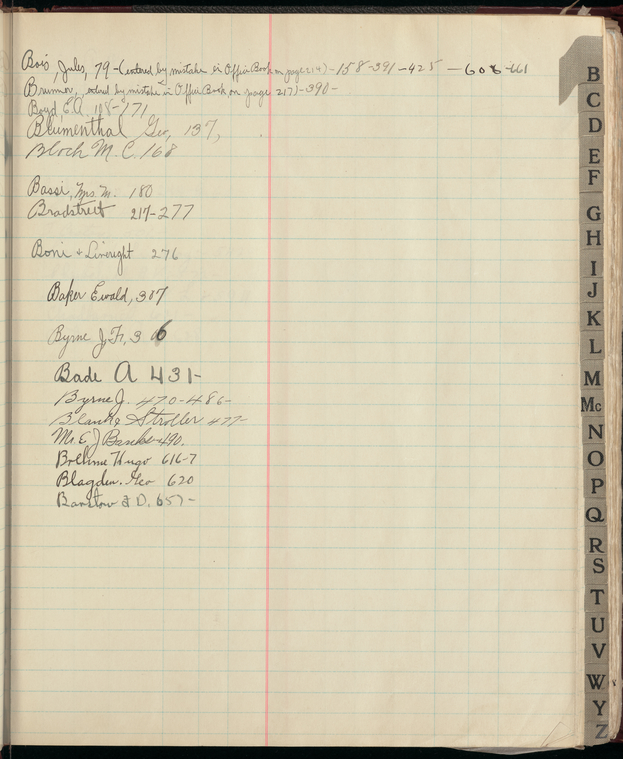 Bois, Jules, 79-(entered by mistake in Office Book on page 214)-158-391-425-606-661
Brunner, entered by mistake in Office Book on page 217)-390-
Boyd, E.A. 108-171
Blumenthal Geo, 137,
Bloch M. C. 168
Bassi, Mrs. M. 180
Bradstreet 217-277
Boni & Liveright 276
Baker Ewald, 307
Byrne J. Fr, 3 6
Bade A 431-
Byrne J. 470-486-
Blanke Stroller 477-
Mr. E J 490.
Bohme Hugo 616-7
Blagden. Geo 620
Banstow & D. 657-
B
C
D
E
F
G
H
I
J
K
L
M
Mc
N
O
P
Q
R
S
T
U
V
W
Y
Z